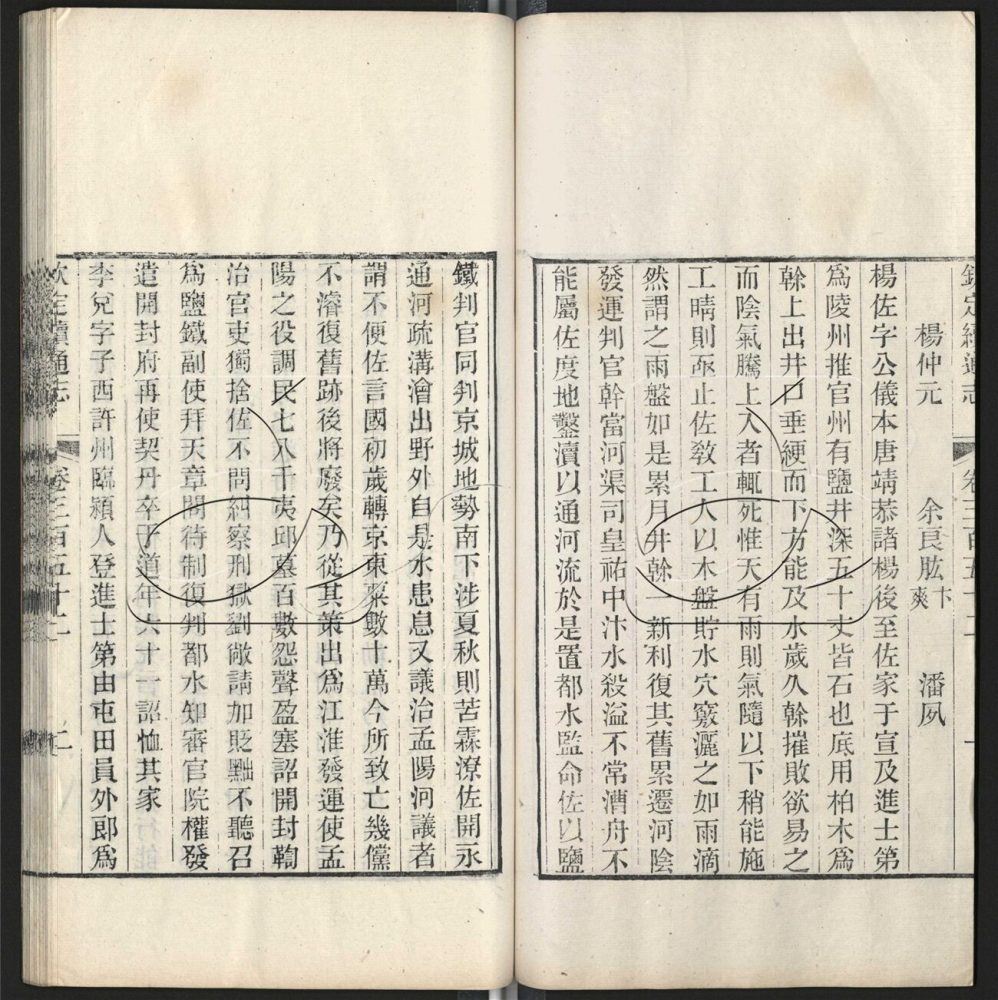 欽定續通志 卷三百五十二 一
楊仲元 余良肱 卞 爽 潘夙
楊佐字公儀本唐靖恭諸楊後至佐家于宣及進士第
爲陵州推官州有鹽井深五十丈皆石也底用柏木爲
榦上出井口垂綆而下方能及水歲久榦摧敗欲易之
而陰氣騰上入者輒死惟天有雨則氣隨以下稍能施
工晴則亟止佐教工人以木盤貯水穴竅灑之如雨滴
然謂之雨盤如是累月井榦一新利復其舊累遷河陰
發運判官幹當河渠司皇祐中汴水殺溢不常漕舟不
能屬佐度地鑿瀆以通河流於是置都水監命佐以鹽
鐵判官同判京城地勢南下涉夏秋則苦霖潦佐開永
通河疏溝澮出野外自是水患息又議治孟陽河議者
謂不便佐言國初歲轉京東粟數十萬今所致亡幾儻
不濬復舊跡後將廢矣乃從其策出爲江淮發運使孟
陽之役調民七八千夷邱墓百數怨聲盈塞詔開封鞫
治官吏獨捨佐不問糾察刑獄劉敞請加貶黜不聽召
爲鹽鐵副使拜天章閣待制復判都水知審官院權發
遣開封府再使契丹卒于道年六十一詔恤其家
李兌字子西許州臨潁人登進士第由屯田員外郎爲
欽定續通志 卷三百五十二 二